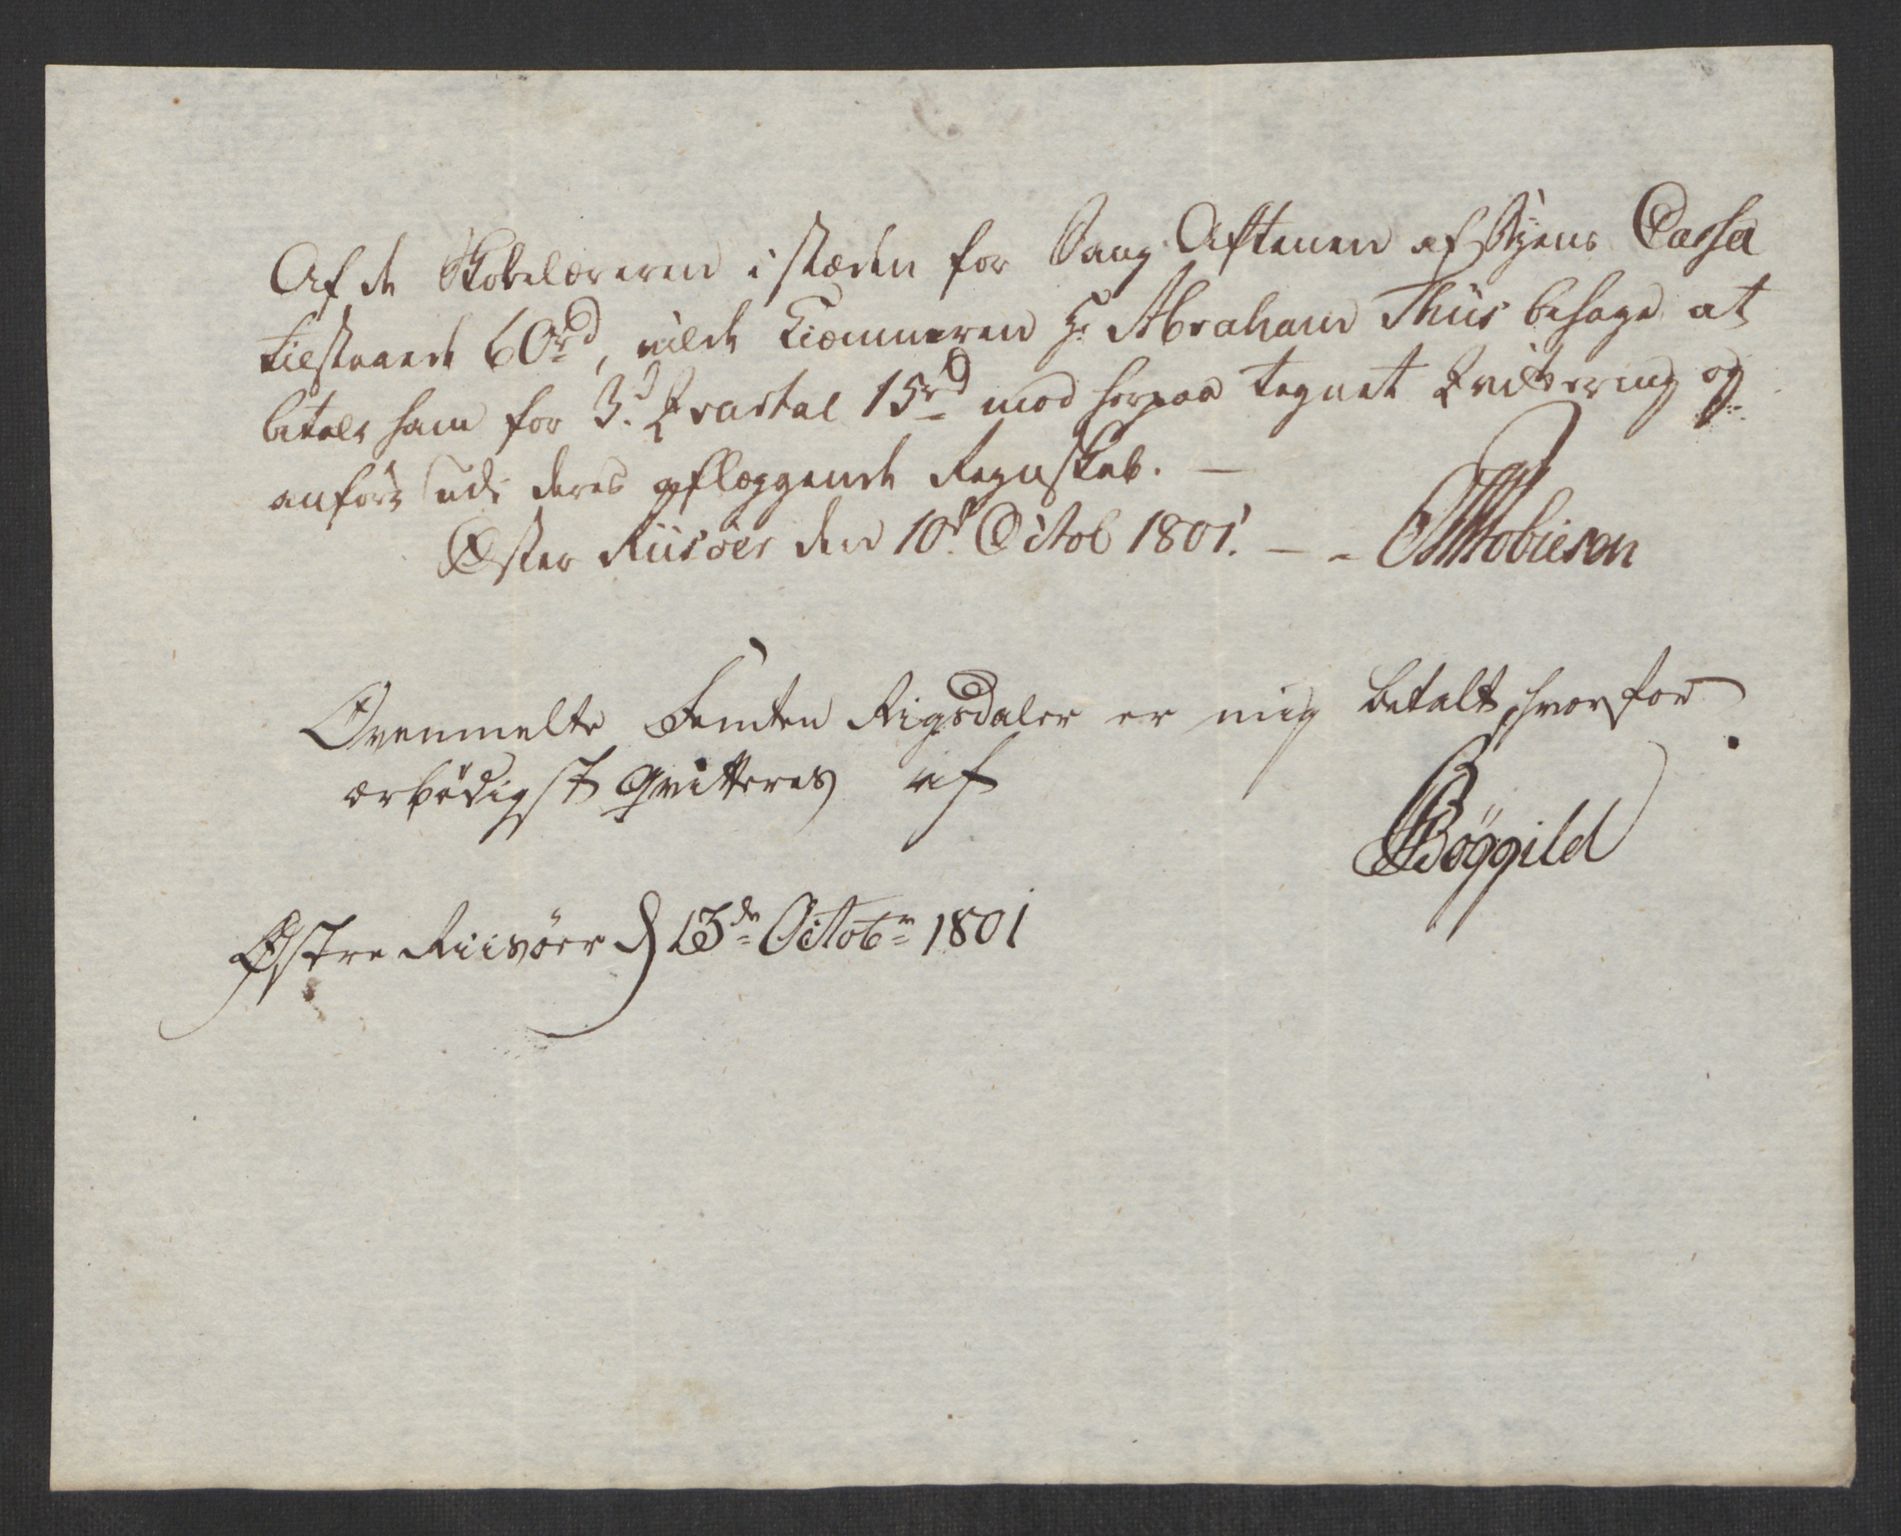 Af de Skolelæreren i stæden for Sang Aftenen af Byens Cassa
tilstaaede 60 rd, vilde Kiæmneren Hr Abraham Thiis behage at
betale ham for 3d Qvartal 15 rd mod herpaa tegnet Qvittering og
anføre udi deres aflæggende Regnskab. —
Øster Riisøer den 10d Octob 1801. — - Tobiesen
Ovenmelte Femten Rigsdaler er mig betalt, hvorfor
ærbødigst qvitteres af
Bøggild
Østre Riisøer d 13de Octobr 1801